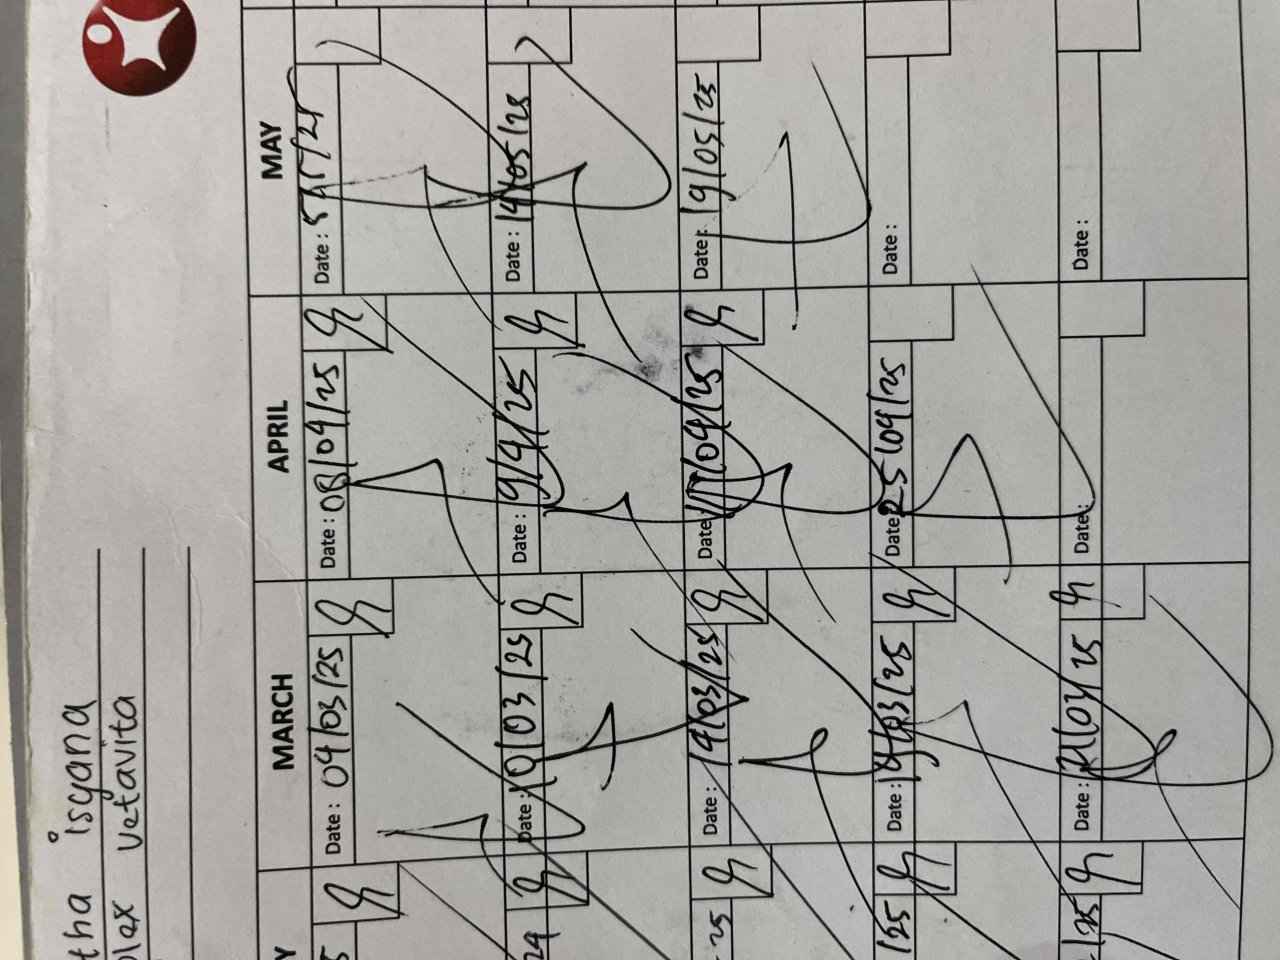 tha isyana
plex vetavita
MARCH
APRIL
MAY
Date: 04/03/25
Date: 08/04/25
Date: 5/05/25
Date: 10/03/25
Date: 9/4/25
Date: 14/05/25
Date: 14/03/25
Date: 17/04/25
Date: 19/05/25
Date: 18/03/25
Date: 25/04/25
Date:
Date: 21/03/25
Date:
Date: